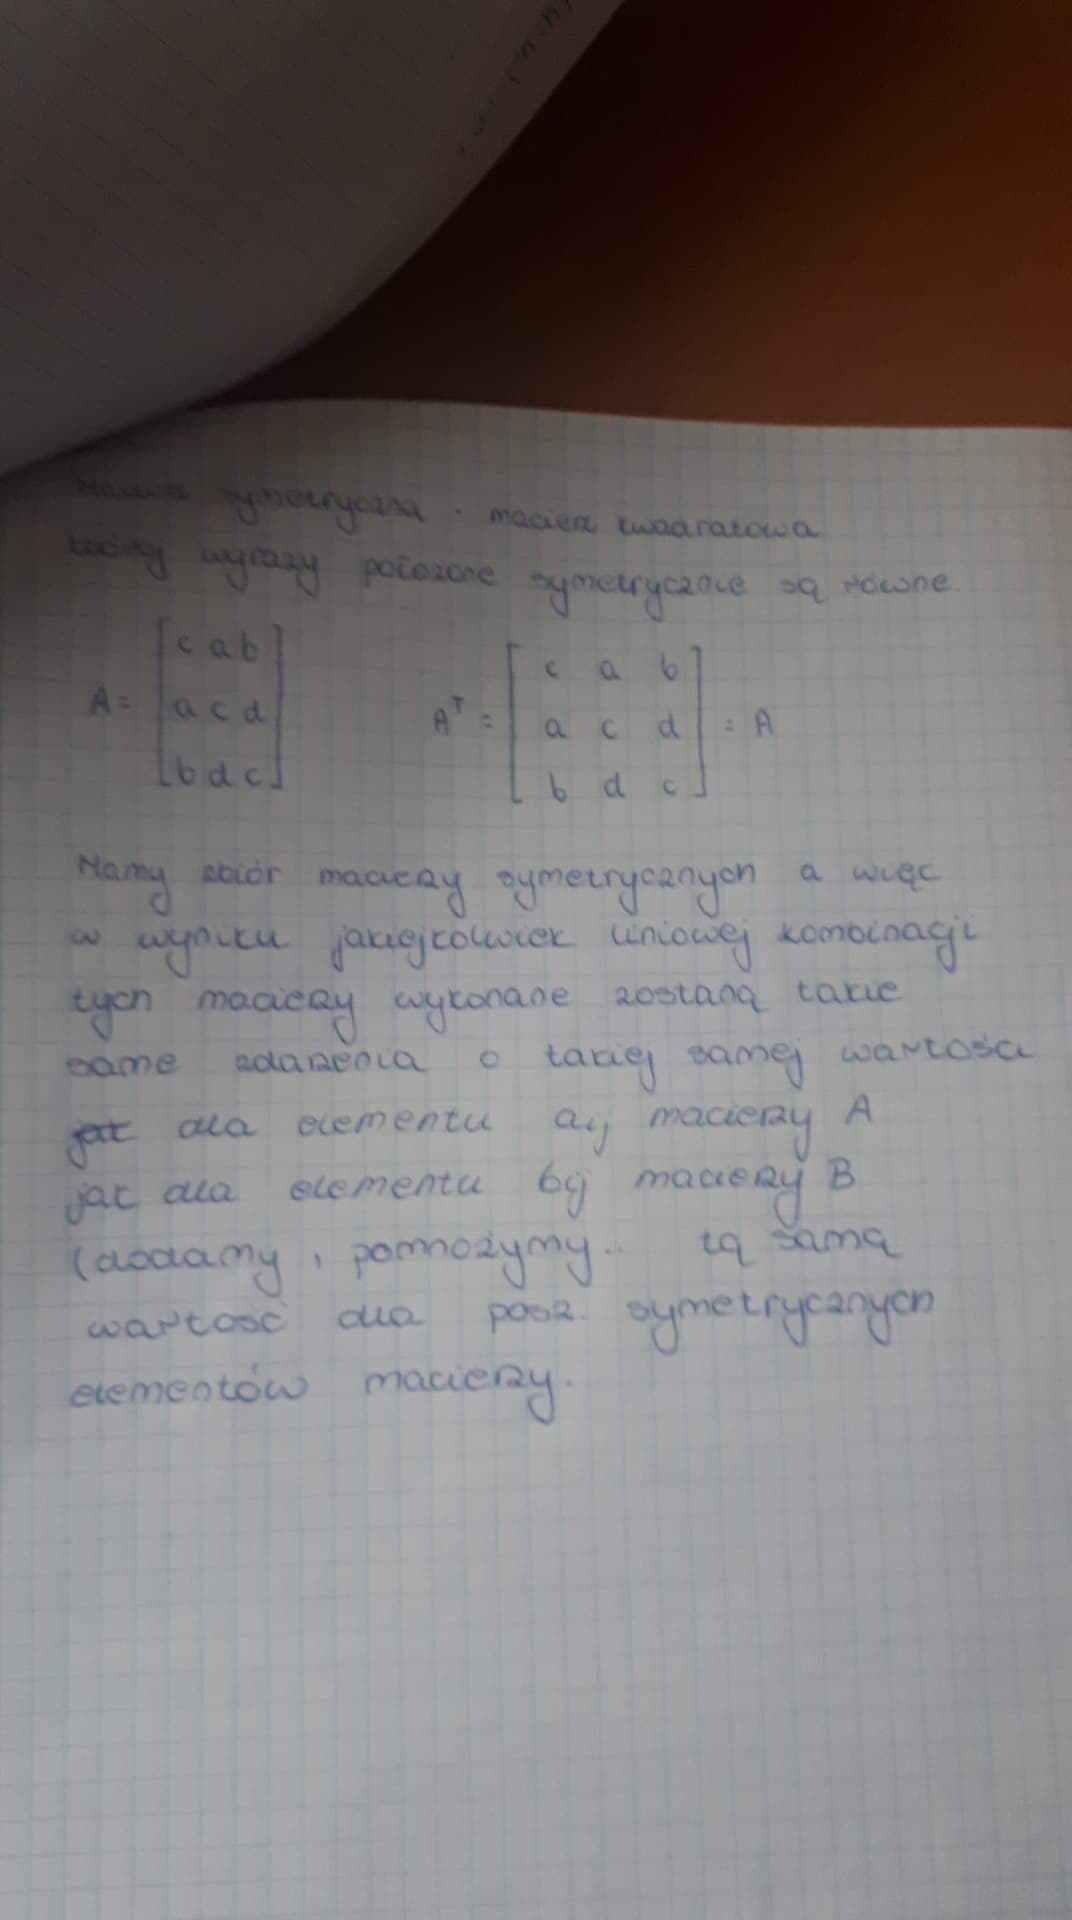 Macierz symetryczna - macierz kwadratowa
której wyrazy położone symetrycznie są równe
A = [c a b
a c d
b d c]
A^T = [c a b
a c d
b d c] = A
Mamy zbiór macierzy symetrycznych a więc
w wyniku jakiejkolwiek liniowej kombinacji
tych macierzy wykonane zostaną takie
same zdarzenia o takiej samej wartości
dla elementu aij macierzy A
jak dla elementu bij macierzy B
(dodamy, pomnożymy.. tą samą
wartość dla posz. symetrycznych
elementów macierzy.